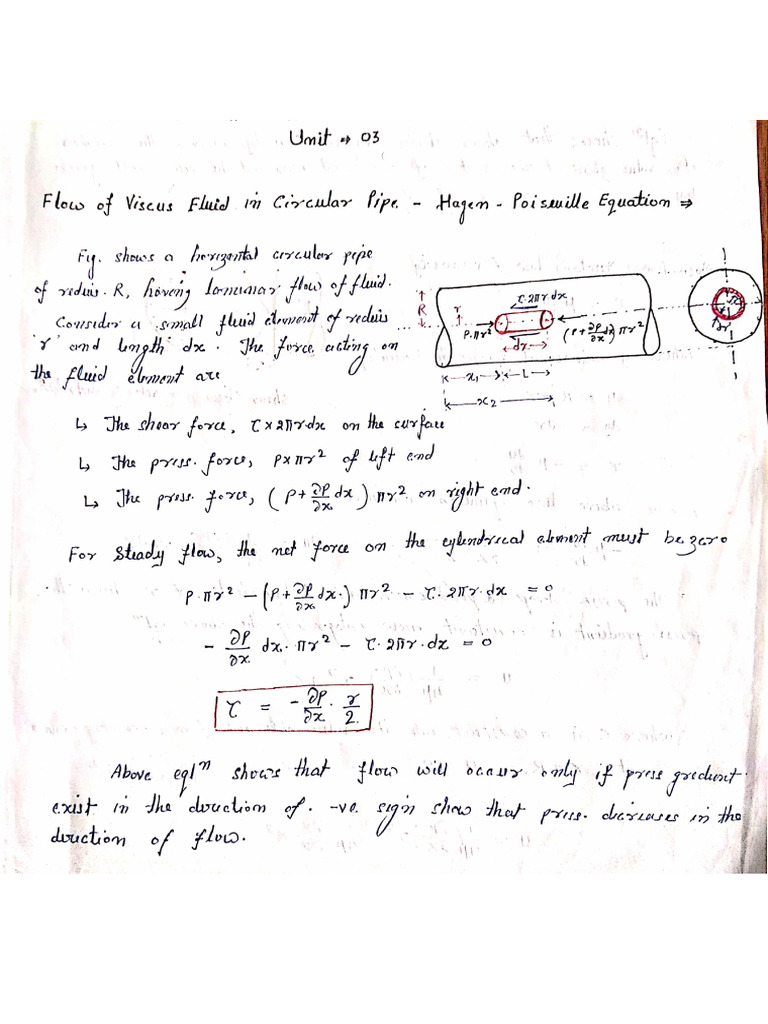 Unit ⇒ 03
Flow of Viscus Fluid in Circular Pipe - Hagen - Poiseuille Equation ⇒
Fig. shows a horizontal circular pipe
of redius. R, having laminar flow of fluid.
Consider a small fluid element of redius
r and length dx. The force acting on
the fluid element are
R
r
τ.2πr dx
P.πr²
(P+∂P/∂x dx) πr²
dx
x₁
L
x₂
r
dr
↳ The shear force, τ×2πr.dx on the surface
↳ The press. force, P×πr² of left end
↳ The press. force, (P+∂P/∂x dx) πr² on right end.
For Steady flow, the net force on the cylendrical element must be zero
P.πr² - (P+∂P/∂x dx.) πr² - τ.2πr.dx = 0
- ∂P/∂x dx. πr² - τ.2πr.dx = 0
τ = -∂P/∂x . r/2.
Above eqlⁿ shows that flow will occur only if press gredient
exist in the duection of. -ve. sign show that press. decreases in the
duection of flow.